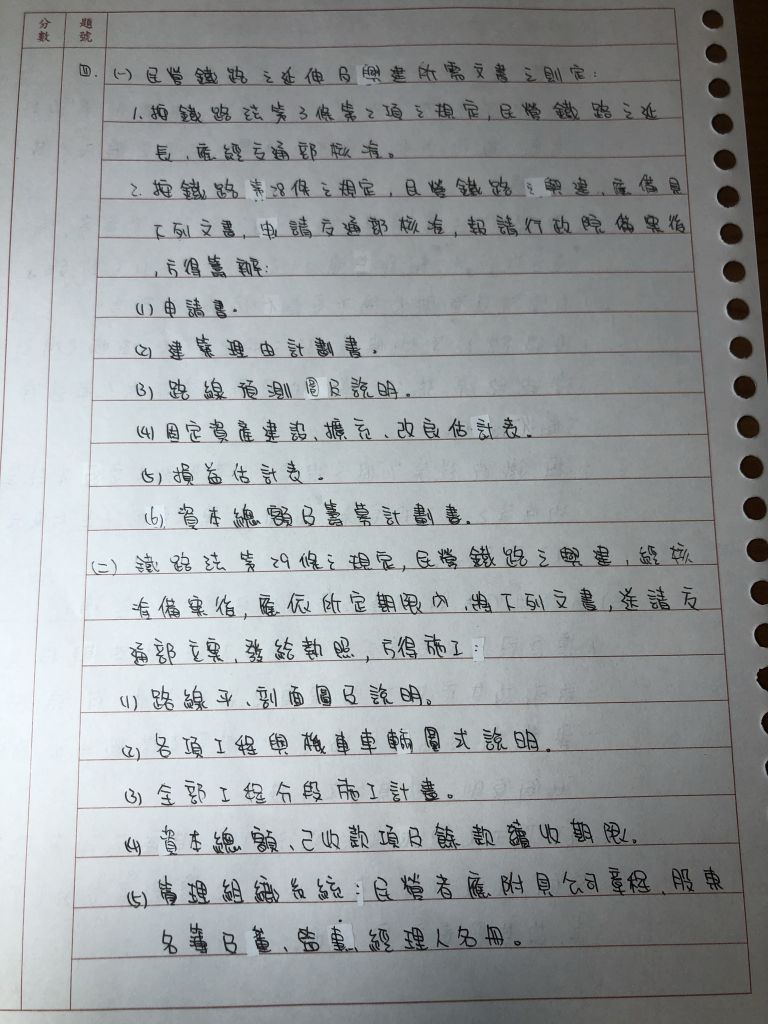 分數
題號
四. (一) 民營鐵路之延伸及興建所需文書之規定:
1. 按鐵路法第3條第2項之規定, 民營鐵路之延
長, 應經交通部核准。
2. 按鐵路第28條之規定, 民營鐵路之興建, 應備具
下列文書, 申請交通部核准, 報請行政院備案後
, 方得籌辦:
(1) 申請書。
(2) 建築理由計劃書。
(3) 路線預測圖及說明。
(4) 固定資產建設、擴充、改良估計表。
(5) 損益估計表。
(6) 資本總額及籌募計劃書。
(二) 鐵路法第29條之規定, 民營鐵路之興建, 經核
准備案後, 應依所定期限內, 將下列文書, 送請交
通部立案, 發給執照, 方得施工:
(1) 路線平、剖面圖及說明。
(2) 各項工程與機車車輛圖式說明。
(3) 全部工程分段施工計畫。
(4) 資本總額、已收款項及餘款續收期限。
(5) 管理組織系統; 民營者應附具公司章程、股東
名簿及董、監事、經理人名冊。